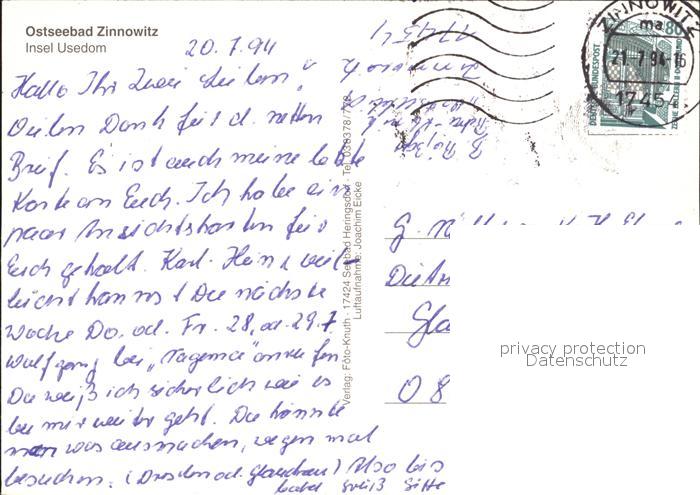 Ostseebad Zinnowitz
Insel Usedom
20.7.94
Hallo Ihr Zwei Lieben,
Vielen Dank für d. netten
Brief. Es ist auch meine letzte
Karte an Euch. Ich habe ein
paar Ansichtskarten für
Euch geholt. Karl-Heinz viel-
leicht kannst Du nächste
Woche Do. od. Fr. 28. od. 29.7
Wolfgang bei „Tagema" anrufen
Da weiß ich sicherlich wie es
bei mir weiter geht. Da könnte
man was ausmachen, wegen mal
besuchen. (Dresden od. Glauchau) Also bis
bald Gruß Gitte
Verlag: Foto-Knuth · 17424 Seebad Heringsdorf · Tel. 038378/
Luftaufnahme: Joachim Eicke
17454
Zinnowitz
ZINNOWITZ
ma
21.-7.94-16
1745
80
DEUTSCHE BUNDESPOST
G.
Dietr
Gla
O 8
privacy protection
Datenschutz